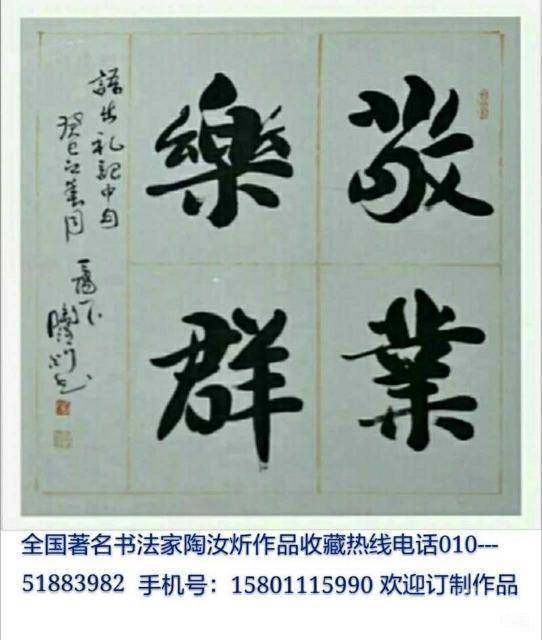 敬業
樂群
語出礼記中句
癸巳之華月
陶
全国著名书法家陶汝炘作品收藏热线电话010---
51883982 手机号：15801115990 欢迎订制作品